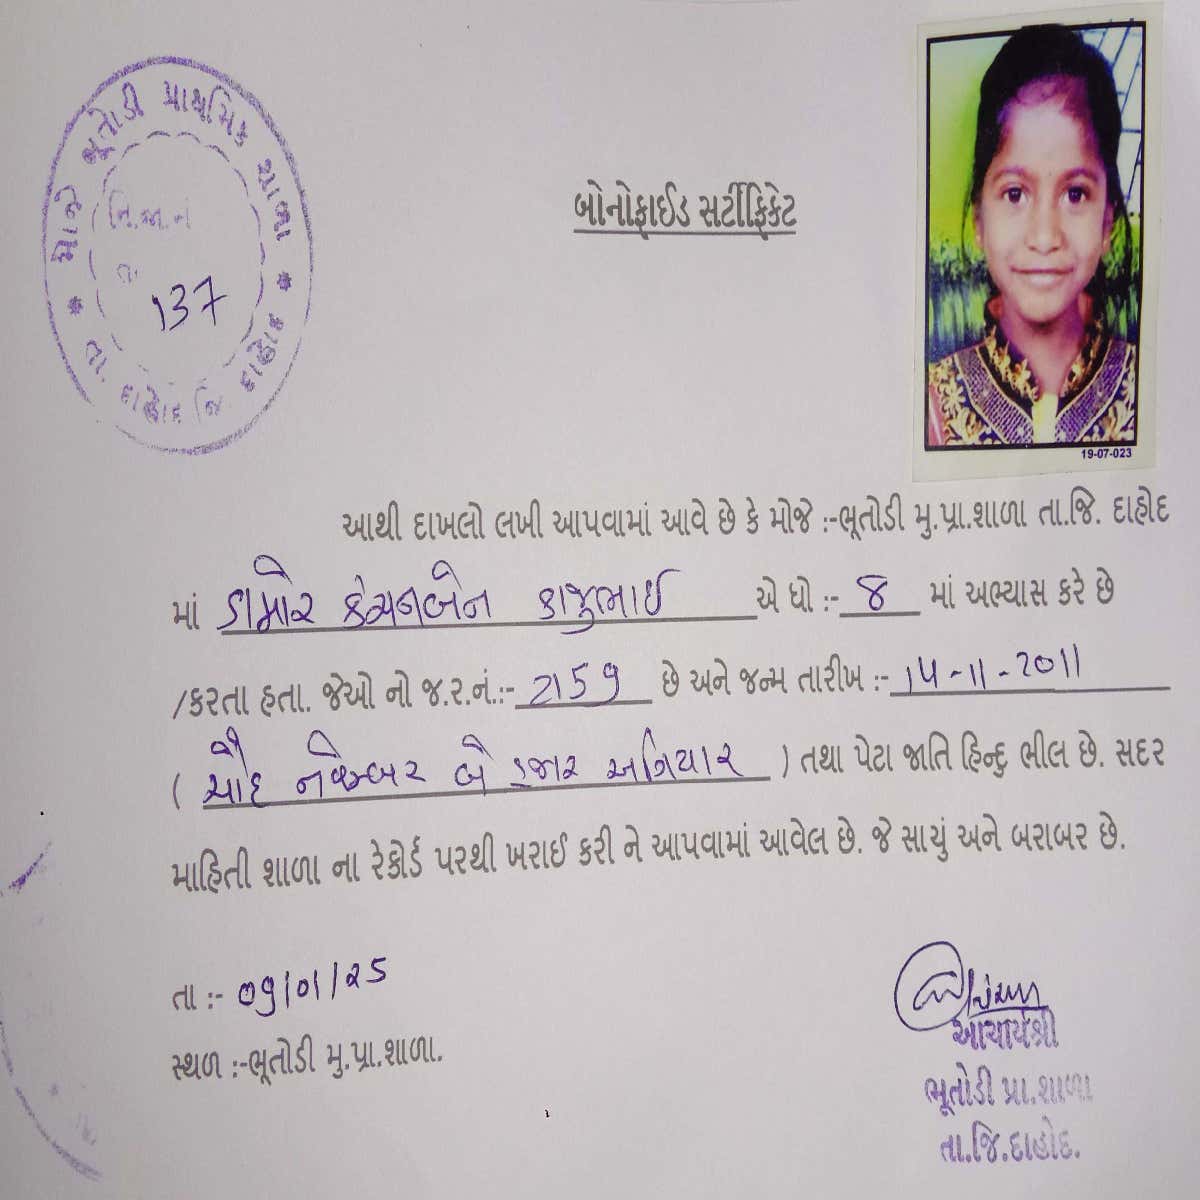 મોજે ભૂતોડી પ્રાથમિક શાળા * તા. દાહોદ જિ. દાહોદ *
નિ.જા.નં
તા.
137
બોનોફાઈડ સર્ટીફિકેટ
19-07-023
આથી દાખલો લખી આપવામાં આવે છે કે મોજે :-ભૂતોડી મુ.પ્રા.શાળા તા.જિ. દાહોદ
માં ડામોર કંચનબેન કાજુભાઈ એ ધો :- 8 માં અભ્યાસ કરે છે
/કરતા હતા. જેઓ નો જ.ર.નં.:- 2159 છે અને જન્મ તારીખ :- 14-11-2011
( ચૌદ નવેમ્બર બે હજાર અગિયાર ) તથા પેટા જાતિ હિન્દુ ભીલ છે. સદર
માહિતી શાળા ના રેકોર્ડ પરથી ખરાઈ કરી ને આપવામાં આવેલ છે. જે સાચું અને બરાબર છે.
તા :- ૦૭/૦૧/૨૫
સ્થળ :-ભૂતોડી મુ.પ્રા.શાળા.
આચાર્યશ્રી
ભૂતોડી પ્રા.શાળા
તા.જિ.દાહોદ.